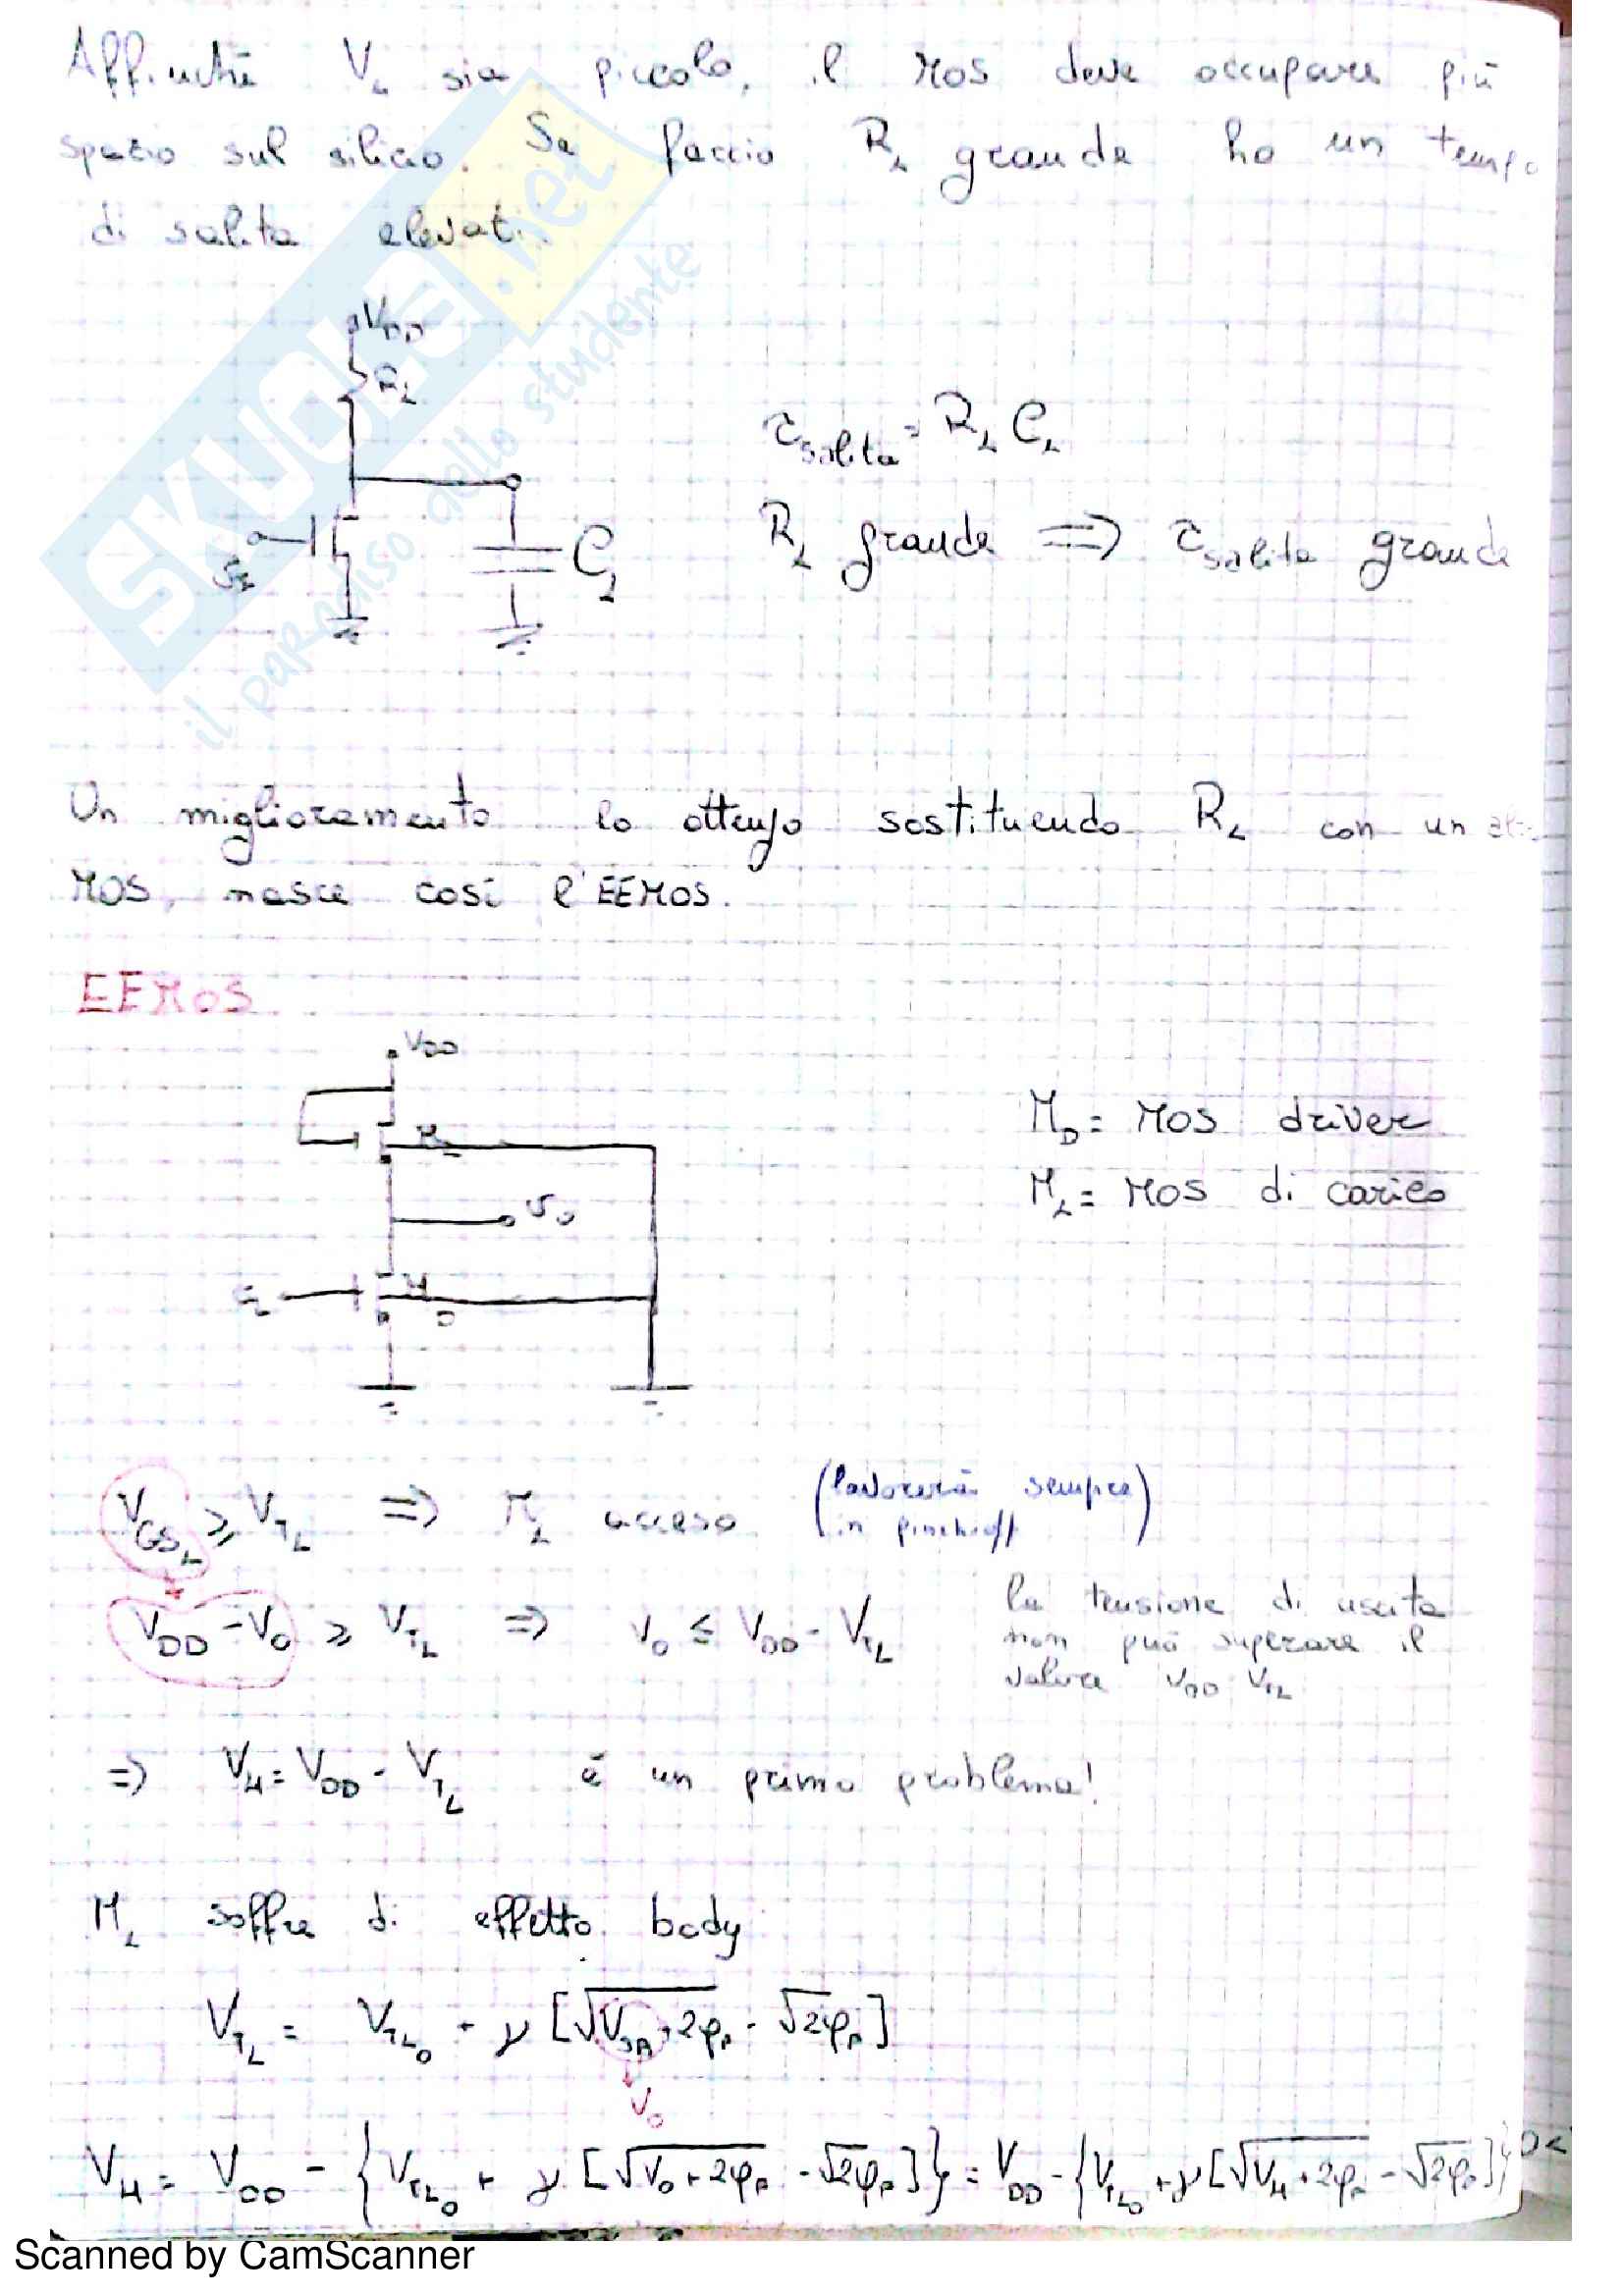 Affinché V_L sia piccolo, il MOS deve occupare più
spazio sul silicio. Se faccio R_L grande ho un tempo
di salita elevati.
V_DD
R_L
τ_salita = R_L C_L
R_L grande ⟹ τ_salita grande
C_L
Un miglioramento lo ottengo sostituendo R_L con un
MOS, nasce così l'EEMOS.
EEMOS
V_DD
M_L
v_o
M_D
M_D = MOS driver
M_L = MOS di carico
V_GS_L ≥ V_T_L ⟹ M_L acceso (lavorerà sempre in pinch-off)
V_DD - V_O ≥ V_T_L ⟹ V_O ≤ V_DD - V_T_L
la tensione di uscita
non può superare il
valore V_DD V_TL
⟹ V_H = V_DD - V_T_L è un primo problema!
M_L soffre di effetto body
V_T_L = V_T_L0 + γ [√(V_SB + 2φ_F) - √2φ_F]
V_O
V_H = V_DD - {V_T_L0 + γ [√(V_O + 2φ_F) - √2φ_F]} = V_DD - {V_T_L0 + γ [√(V_H + 2φ_F) - √2φ_F]}
SKUOLA.net
il paradiso dello studente
Scanned by CamScanner